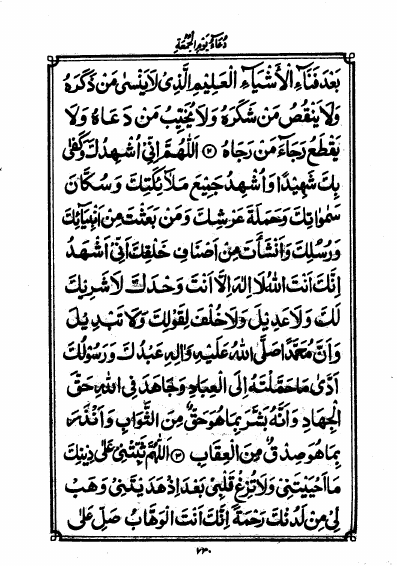 دُعَاءُ يَوْمِ الْجُمُعَةِ
بَعْدَ فَنَآءِ الْأَشْيَآءِ الْعَلِيْمِ الَّذِىْ لَا يَنْسٰى مَنْ ذَكَرَهٗ
وَلَا يَنْقُصُ مَنْ شَكَرَهٗ وَلَا يُخَيِّبُ مَنْ دَعَاهُ وَلَا
يَقْطَعُ رَجَآءَ مَنْ رَجَاهُ ۝۲ اَللّٰهُمَّ اِنِّىْ اُشْهِدُكَ وَكَفٰى
بِكَ شَهِيْدًا وَاُشْهِدُ جَمِيْعَ مَلَآئِكَتِكَ وَسُكَّانَ
سَمٰوَاتِكَ وَحَمَلَةَ عَرْشِكَ وَمَنْ بَعَثْتَ مِنْ اَنْبِيَآئِكَ
وَرُسُلِكَ وَاَنْشَأْتَ مِنْ اَصْنَافِ خَلْقِكَ اَنِّىْ اَشْهَدُ
اِنَّكَ اَنْتَ اللهُ لَا اِلٰهَ اِلَّا اَنْتَ وَحْدَكَ لَا شَرِيْكَ
لَكَ وَلَا عَدِيْلَ وَلَا خُلْفَ لِقَوْلِكَ وَلَا تَبْدِيْلَ
وَاَنَّ مُحَمَّدًا صَلَّى اللهُ عَلَيْهِ وَاٰلِهٖ عَبْدُكَ وَرَسُوْلُكَ
اَدّٰى مَا حَمَّلْتَهٗ اِلَى الْعِبَادِ وَجَاهَدَ فِى اللهِ حَقَّ
الْجِهَادِ وَاَنَّهٗ بَشَّرَ بِمَا هُوَ حَقٌّ مِنَ الثَّوَابِ وَاَنْذَرَ
بِمَا هُوَ صِدْقٌ مِنَ الْعِقَابِ ۝۳ اَللّٰهُمَّ ثَبِّتْنِىْ عَلٰى دِيْنِكَ
مَا اَحْيَيْتَنِىْ وَلَا تُزِغْ قَلْبِىْ بَعْدَ اِذْ هَدَيْتَنِىْ وَهَبْ
لِىْ مِنْ لَدُنْكَ رَحْمَةً اِنَّكَ اَنْتَ الْوَهَّابُ صَلِّ عَلٰى
۷۳۰